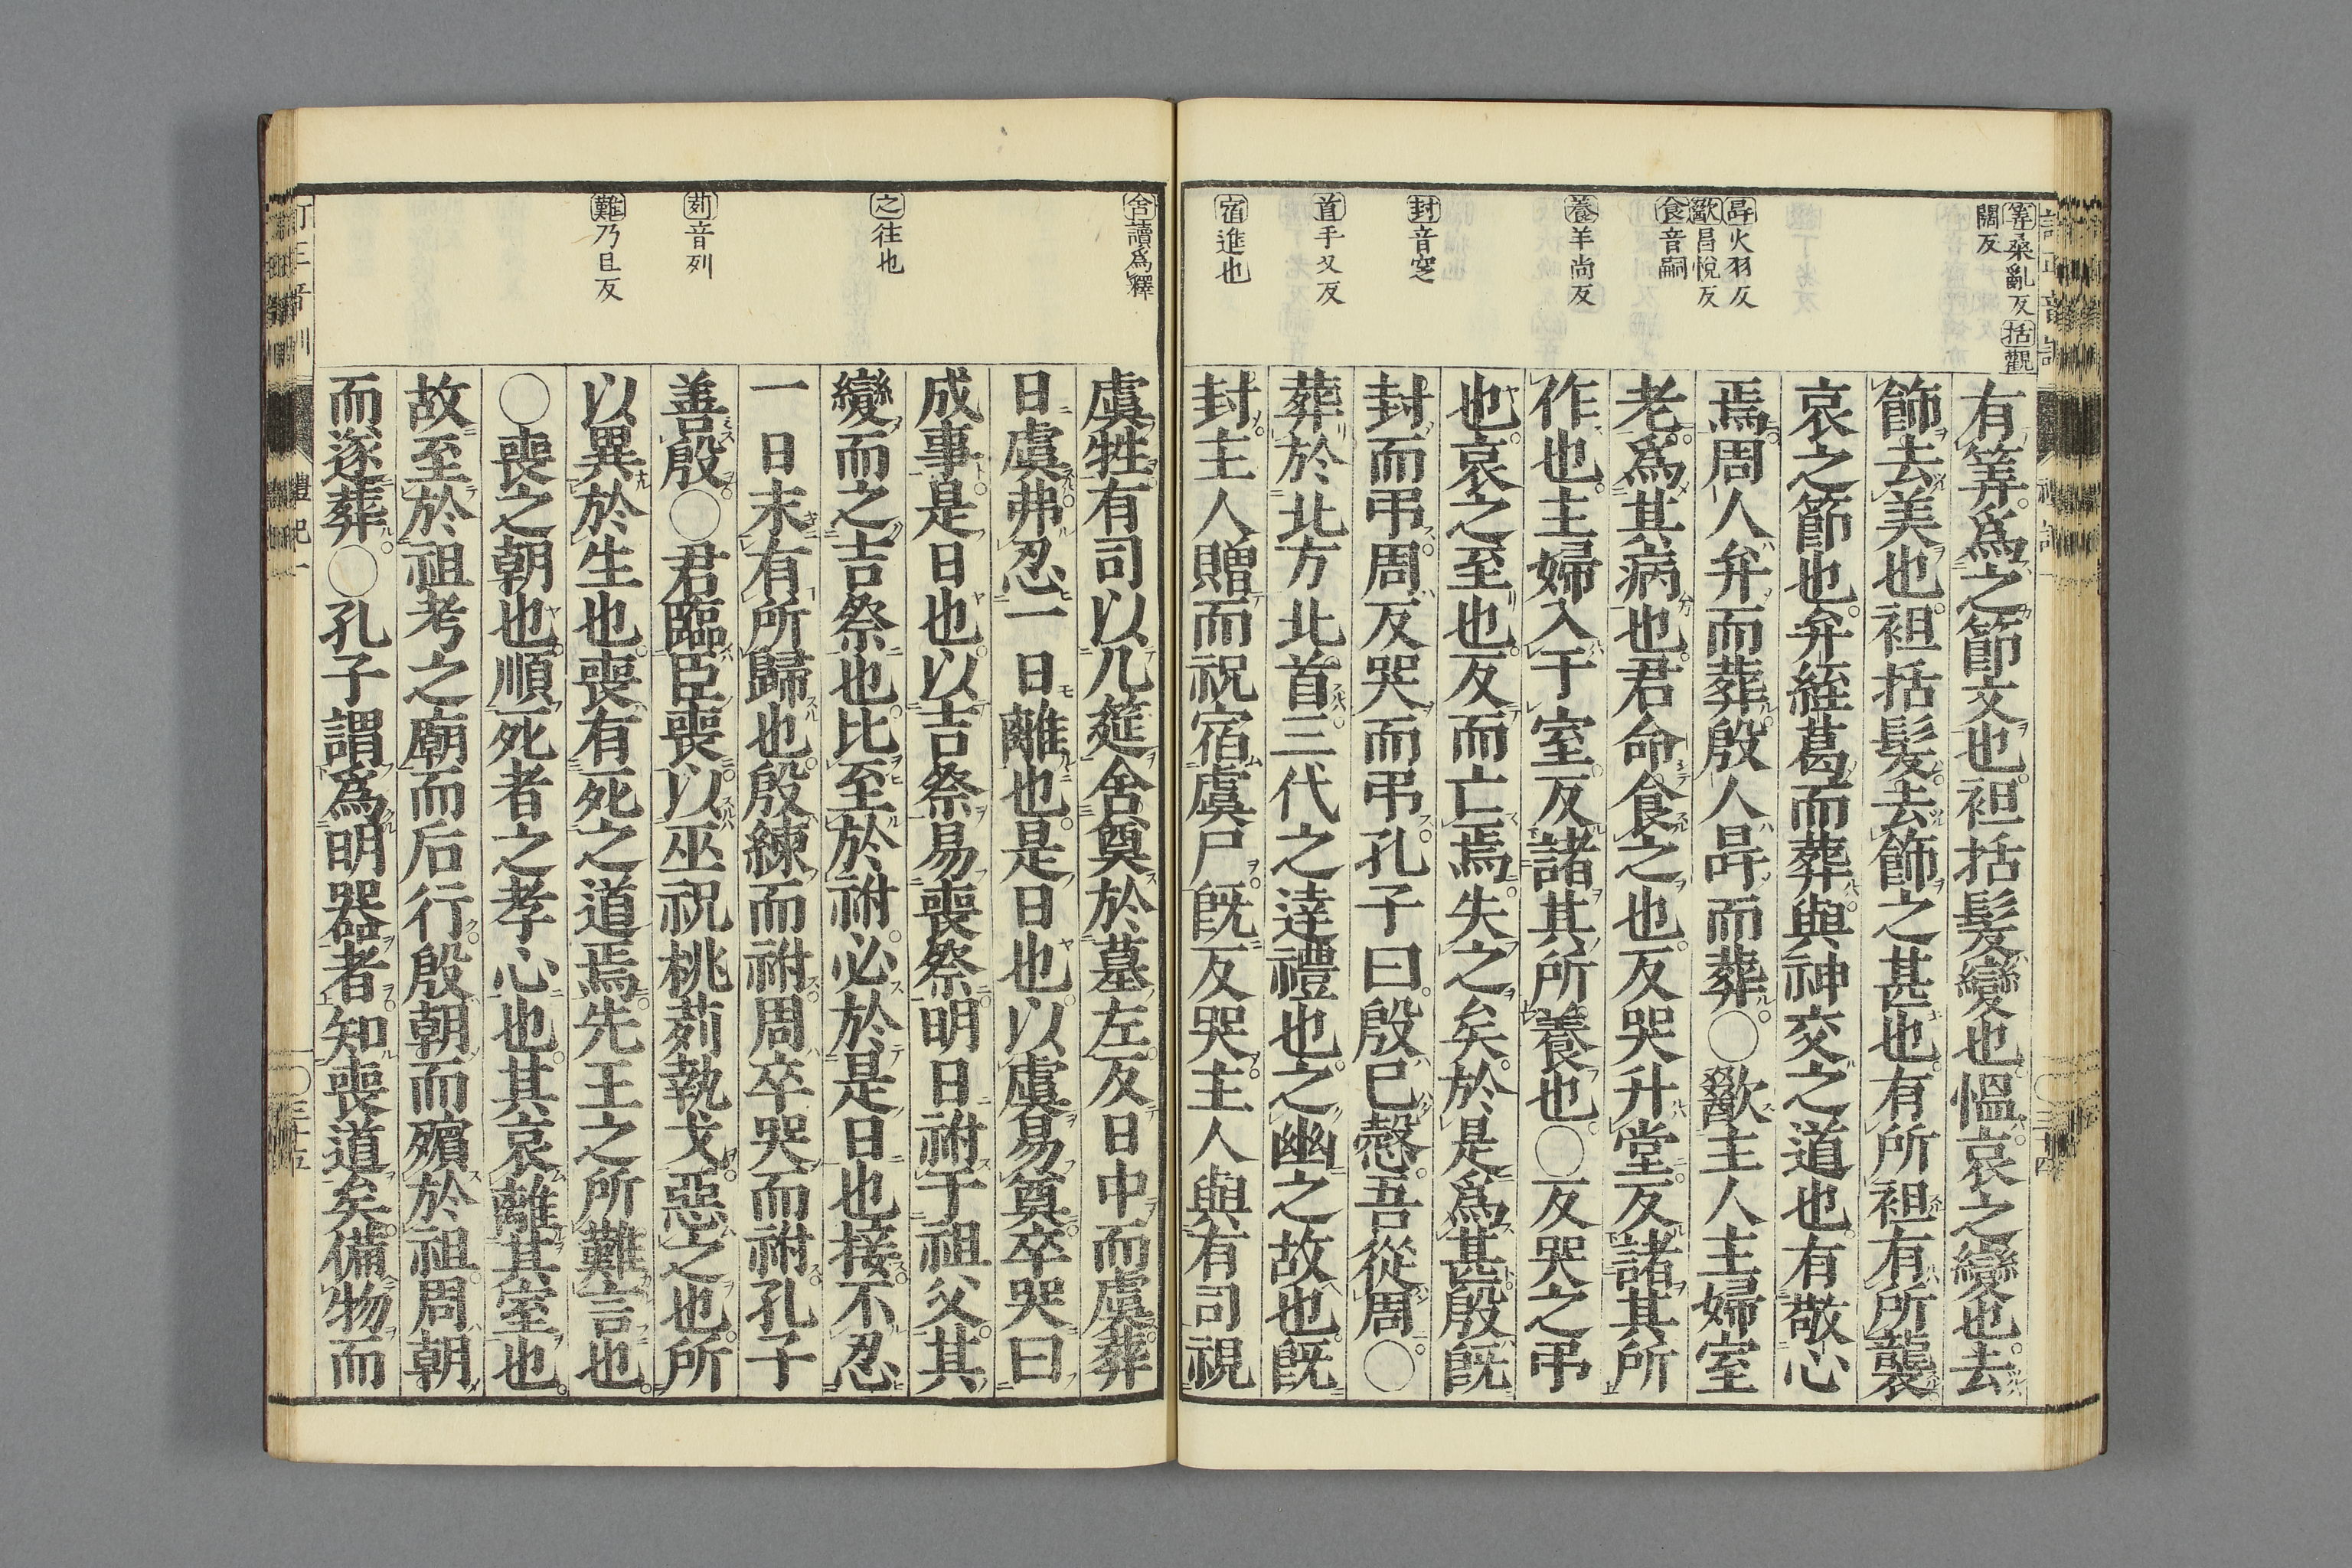 筭桑亂反括觀
闊反
冔火羽反
歠昌悅反
食音嗣
養羊尚反
封音窆
首手又反
宿進也
有筭爲之節文也袒括髮變也慍哀之變也去
飾去美也袒括髮去飾之甚也有所袒有所襲
哀之節也弁絰葛而葬與神交之道也有敬心
焉周人弁而葬殷人冔而葬○歠主人主婦室
老爲其病也君命食之也反哭升堂反諸其所
作也主婦入于室反諸其所養也○反哭之弔
也哀之至也反而亡焉失之矣於是爲甚殷既
封而弔周反哭而弔孔子曰殷已慤吾從周○
葬於北方北首三代之達禮也之幽之故也既
封主人贈而祝宿虞尸既反哭主人與有司視
舍讀爲釋
之往也
茢音列
難乃旦反
虞牲有司以几筵舍奠於墓左反日中而虞葬
日虞弗忍一日離也是日也以虞易奠卒哭曰
成事是日也以吉祭易喪祭明日祔于祖父其
變而之吉祭也比至於祔必於是日也接不忍
一日末有所歸也殷練而祔周卒哭而祔孔子
善殷○君臨臣喪以巫祝桃茢執戈惡之也所
以異於生也喪有死之道焉先王之所難言也
○喪之朝也順死者之孝心也其哀離其室也
故至於祖考之廟而后行殷朝而殯於祖周朝
而遂葬○孔子謂爲明器者知喪道矣備物而
禮記一
三十五